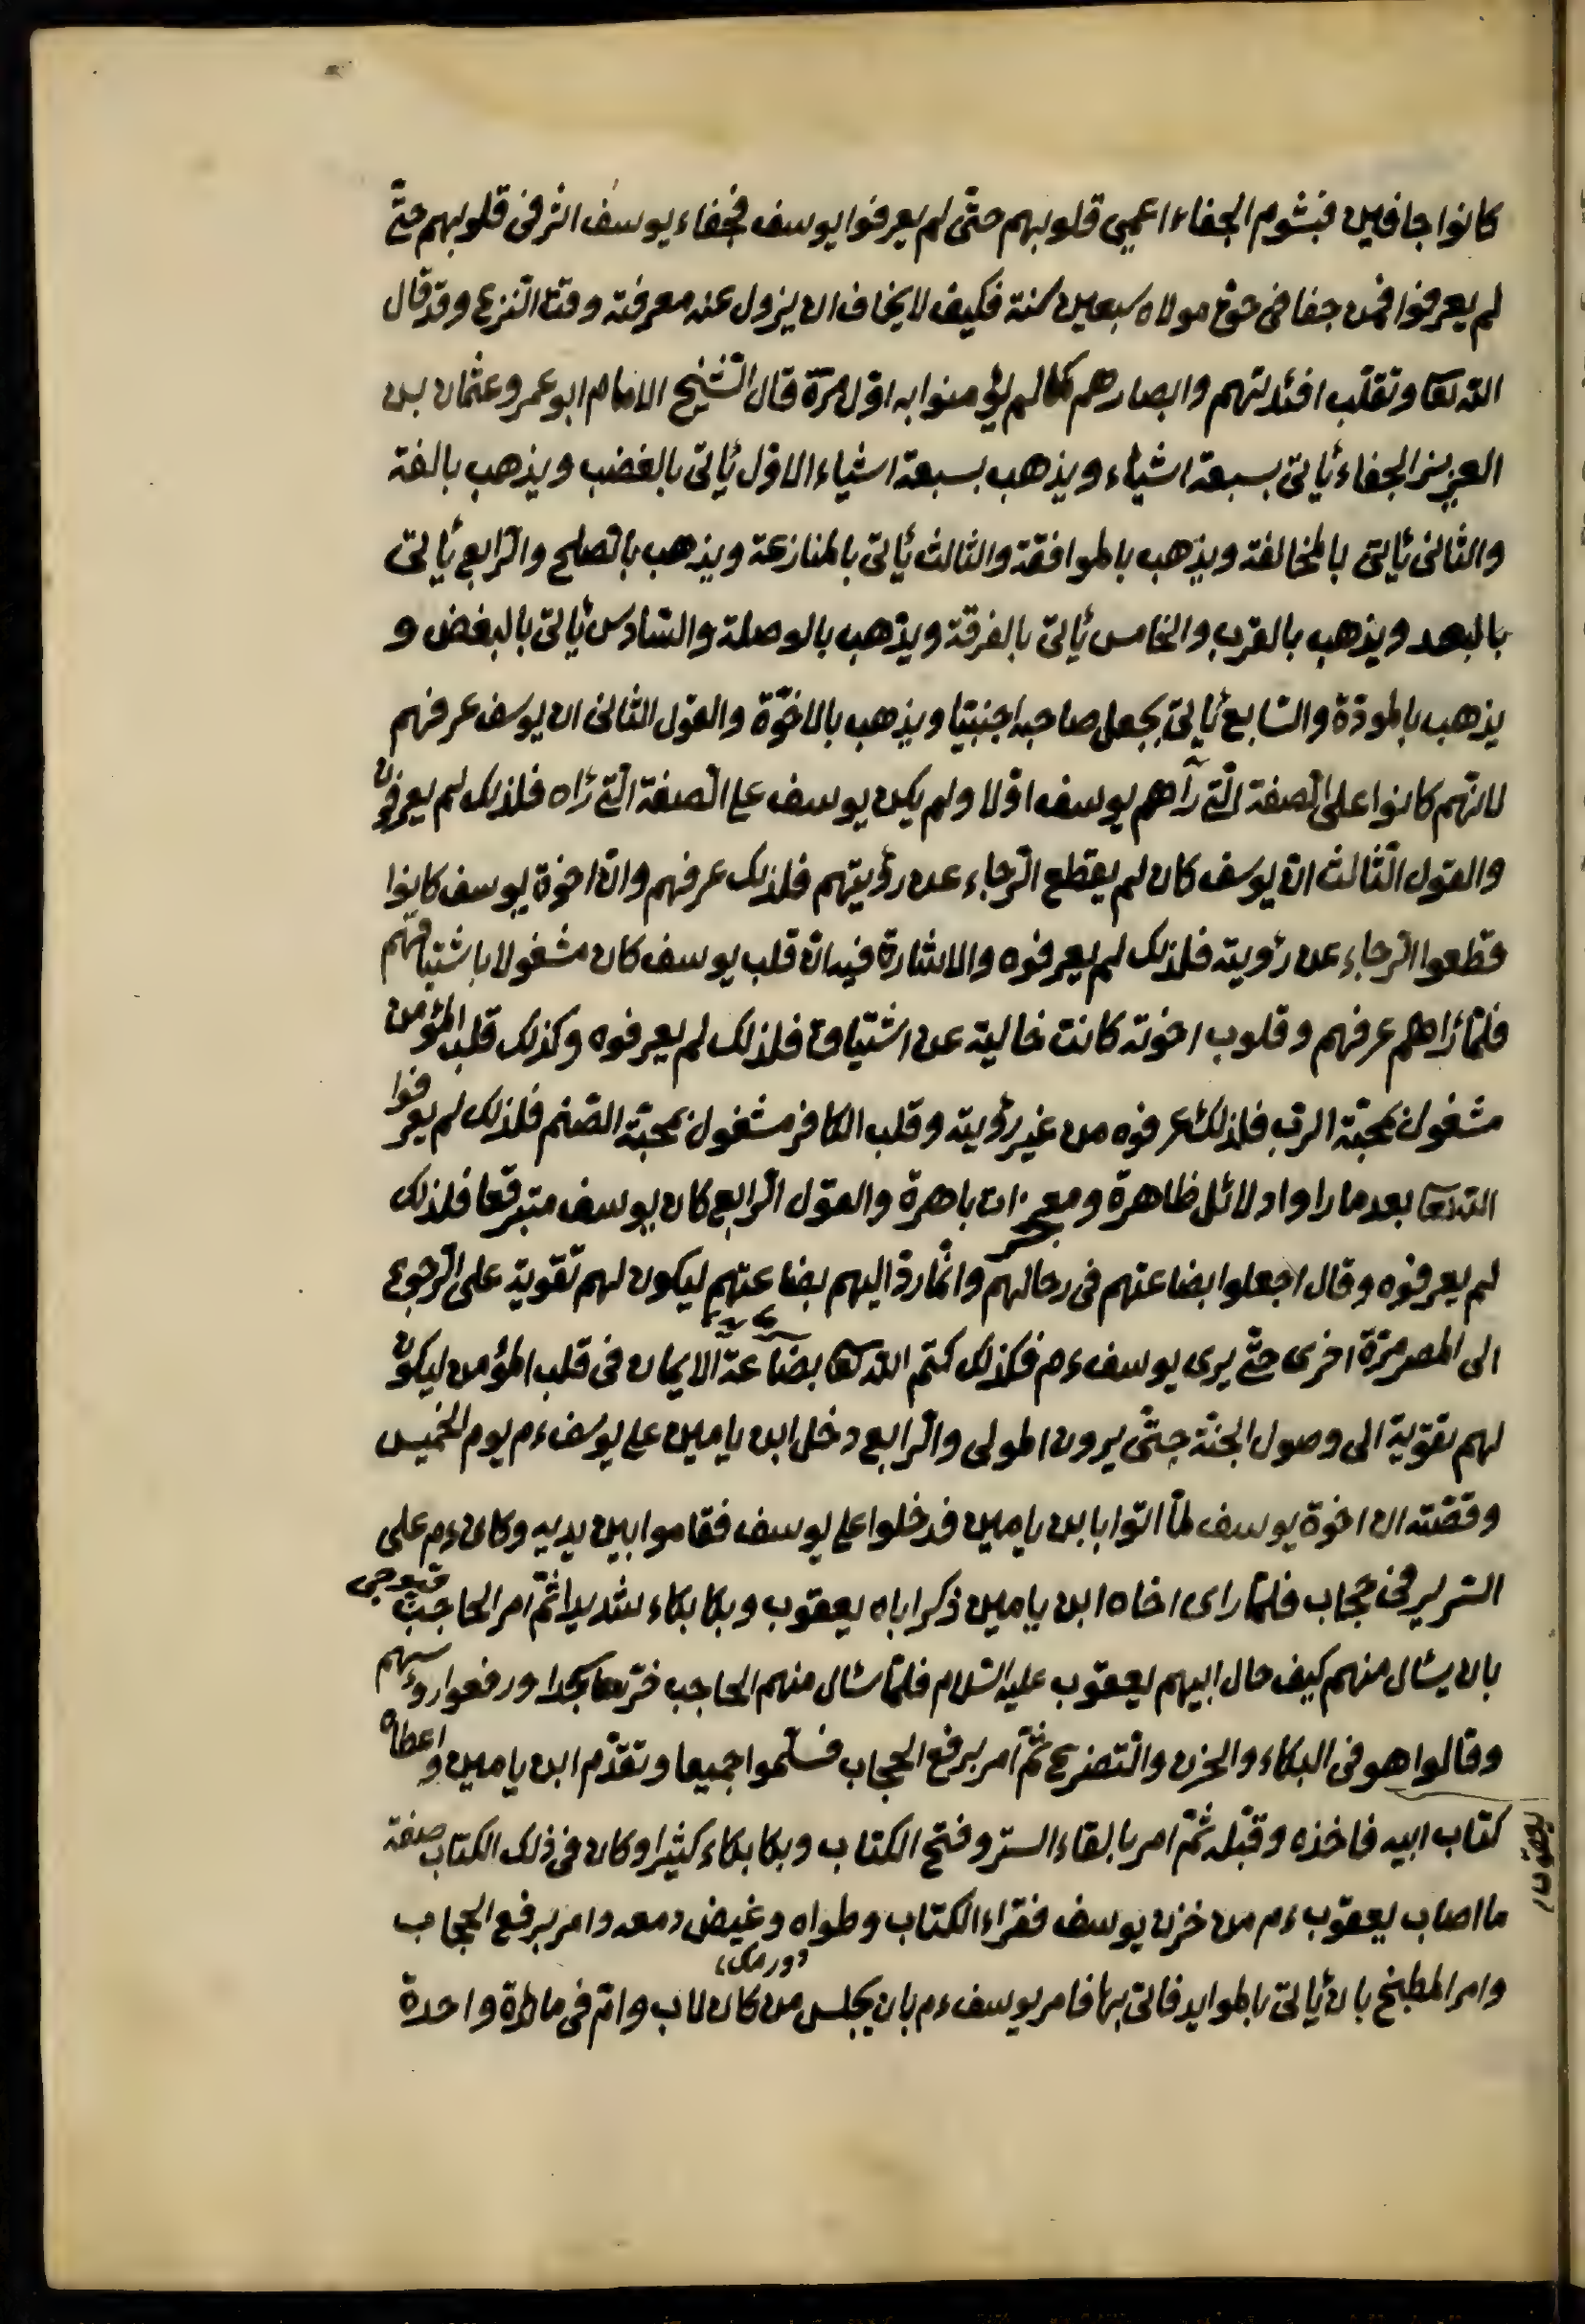 كانوا جافين فبشوم الجفاء اعمي قلوبهم حتّى لم يعرفوا يوسف فجفاء يوسف اثر فى قلوبهم حتّى
لم يعرفوا فمن جفا فى حق مولاه سبعين سنة فكيف لا يخاف ان يزول عنه معرفته وقت النزع وقد قال
الله تعا ونقلّب افئدتهم وابصارهم كما لم يؤمنوا به اوّل مرّة قال الشّيخ الامام ابو عمرو عثمان بن
العزيز الجفاء يأتى بسبعة اشياء ويذهب بسبعة اشياء الاوّل يأتى بالغضب ويذهب بالفة
والثانى يأتى بالمخالفة ويذهب بالموافقة والثالث يأتى بالمنازعة ويذهب بالصّلح والرّابع يأتى
بالبعد ويذهب بالقرب والخامس يأتى بالفرقة ويذهب بالوصلة والسّادس يأتى بالبغض و
يذهب بالمودّة والسّابع يأتى بجعل صاحبه اجنبيّا ويذهب بالاخوّة والقول الثانى ان يوسف عرفهم
لانّهم كانوا على الصّفة الّتى رآهم يوسف اوّلا ولم يكن يوسف على الصّفة الّتى رأه فلذلك لم يعرفون
والقول الثّالث انّ يوسف كان لم يقطع الرّجاء عن رؤيتهم فلذلك عرفهم وانّ اخوة يوسف كانوا
قطعوا الرّجاء عن رؤيته فلذلك لم يعرفوه والاشارة فيه انّ قلب يوسف كان مشغولا باشتياقهم
فلمّا رأهم عرفهم وقلوب اخوته كانت خالية عن اشتياق فلذلك لم يعرفوه وكذلك قلب المؤمن
مشغول بمحبّة الربّ فلذلك عرفوه من غير رؤيته وقلب الكافر مشغول بمحبّة الصّنم فلذلك لم يعرفوا
الله تعا بعد ما راوا دلائل ظاهرة ومعجزات باهرة والقول الرّابع كان يوسف متبرقعا فلذلك
لم يعرفوه وقال اجعلوا بضاعتهم فى رحالهم وانّما ردّ اليهم بضاعتهم ليكون لهم تقوية على الرّجوع
الى المصر مرّة اخرى حتّى يرى يوسف ءم فكذلك كتم الله تعا بضاعة الايمان فى قلب المؤمن ليكون
لهم تقوية الى وصول الجنّة حتّى يرون المولى والرّابع دخل ابن يامين على يوسف ءم يوم الخميس
وقصّته ان اخوة يوسف لمّا اتوا بابن يامين فدخلوا على يوسف فقاموا بين يديه وكان ءم على
السّرير فى حجاب فلمّا راى اخاه ابن يامين ذكر اباه يعقوب وبكا بكاء شديدا ثمّ امر الحاجب
بان يسأل منهم كيف حال ابيهم يعقوب عليه السّلام فلمّا سأل منهم الحاجب خرّ سجدا ورفعوا رؤسهم
وقالوا هو فى البكاء والحزن والتّضرع ثمّ امر برفع الحجاب فسلّموا جميعا وتقدّم ابن يامين واعطاه
كتاب ابيه فاخذه وقبّله ثمّ امر بالقاء الستر وفتح الكتاب وبكا بكاء كثيرا وكان فى ذلك الكتاب صفة
ما اصاب يعقوب ءم من خزن يوسف فقراء الكتاب وطواه وغيض دمعه وامر برفع الحجاب
وامر المطبخ بان يأتى بالموايد فاتى بها فامر يوسف ءم بان يجلس من كان لاب وام فى مائدة واحدة